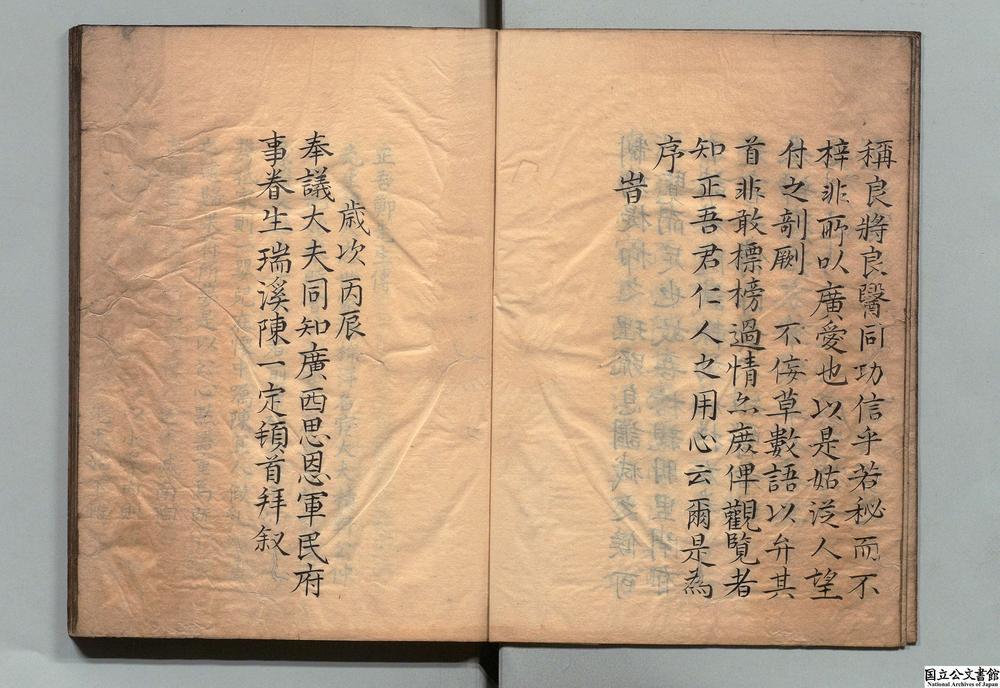 稱良將良醫同功信乎若秘而不
梓非所以廣愛也以是姑從人望
付之剞劂　不侫草數語以弁其
首非敢標榜過情亦庻俾觀覽者
知正吾君仁人之用心云爾是為
序
旹
歲次丙辰
奉議大夫同知廣西思恩軍民府
事眷生瑞溪陳一定頓首拜叙
国立公文書館
National Archives of Japan